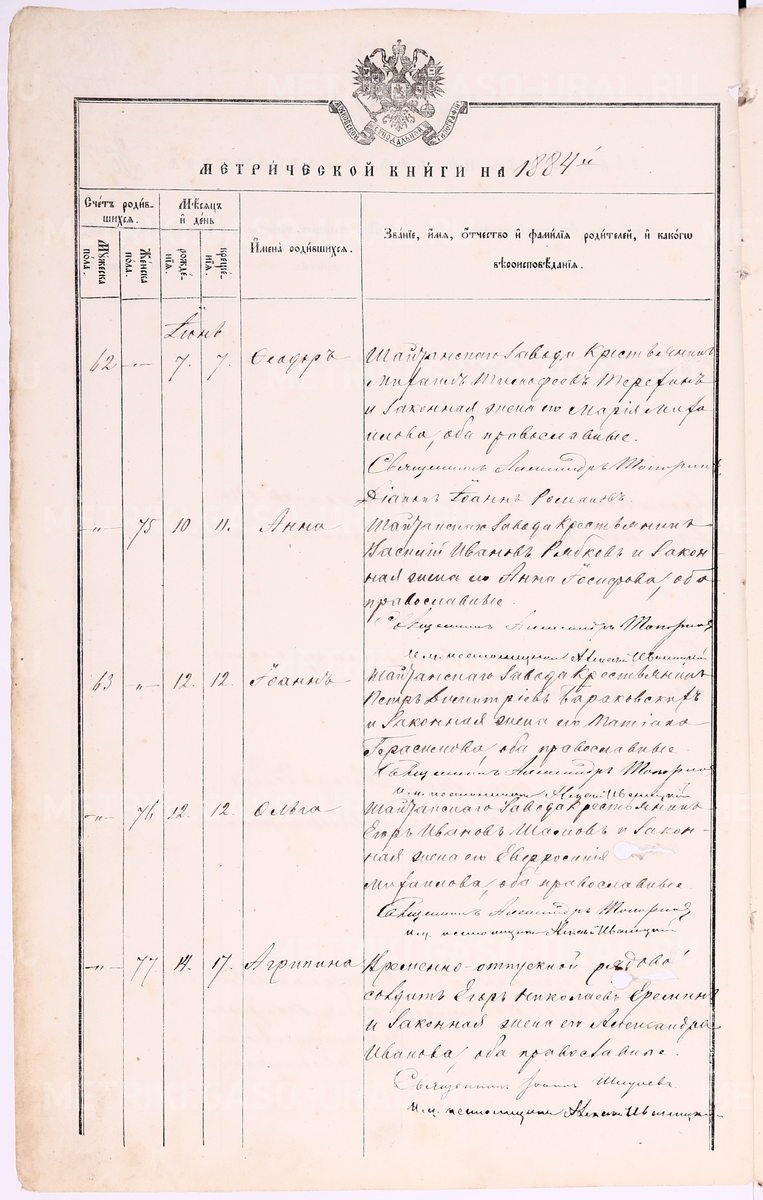 МЕТРИЧЕСКОЙ КНИГИ НА 1884 й
Счетъ родив-
шихся.
Мѣсяцъ
и день
Имена родившихся.
Званіе, имя, отчество и фамилія родителей, и какогω
вѣроисповѣданія.
Мужеска
пола.
Женска
пола.
рожде-
нія.
креще-
нія.
Іюнь
62 -"- 7. 7. Ѳеодоръ Шайтанскаго Завода Крестьянинъ
Михаилъ Тимофеевъ
и Законная жена его Марія Михаи
лова, оба православные.
Священникъ Александръ Топорковъ
Діаконъ Іоаннъ Романовъ.
-"- 75 10 11. Анна Шайтанскаго Завода Крестьянинъ
Василій Ивановъ Рябковъ и Закон-
ная жена его Анна Іосифова, оба
православные.
Священникъ Александръ
И. д. псаломщика Алексѣй
63 " 12. 12. Іоаннъ Шайтанскаго Завода Крестьянинъ
Петръ Димитріевъ
и Законная жена его
Герасимова, оба православные.
Священникъ Александръ
И. д. псаломщика Алексѣй
-"- 76 12. 12. Ольга Шайтанскаго Завода Крестьянинъ
Егоръ Ивановъ и Закон-
ная жена его
Михаилова, оба православные.
Священникъ Александръ
И. д. псаломщика Алексѣй
-"- 77 14. 17. Агрипина Временно-отпускной рядовой
солдатъ Егоръ Николаевъ Ереминъ
и Законная жена его Александра
Иванова, оба православные.
Священникъ Іоаннъ
И. д. псаломщика Алексѣй